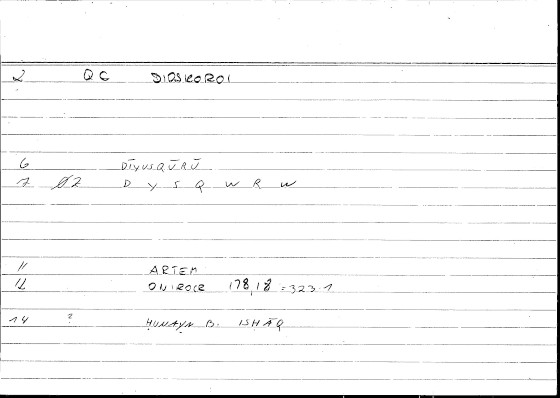 2 QC DIOSKOROI
6 DĪYUSQŪRŪ
7 02 D Y S Q W R W
11 ARTEM
12 ONIROCR 178,18 = 323.1
14 ? ḤUNAYN B. ISḤĀQ